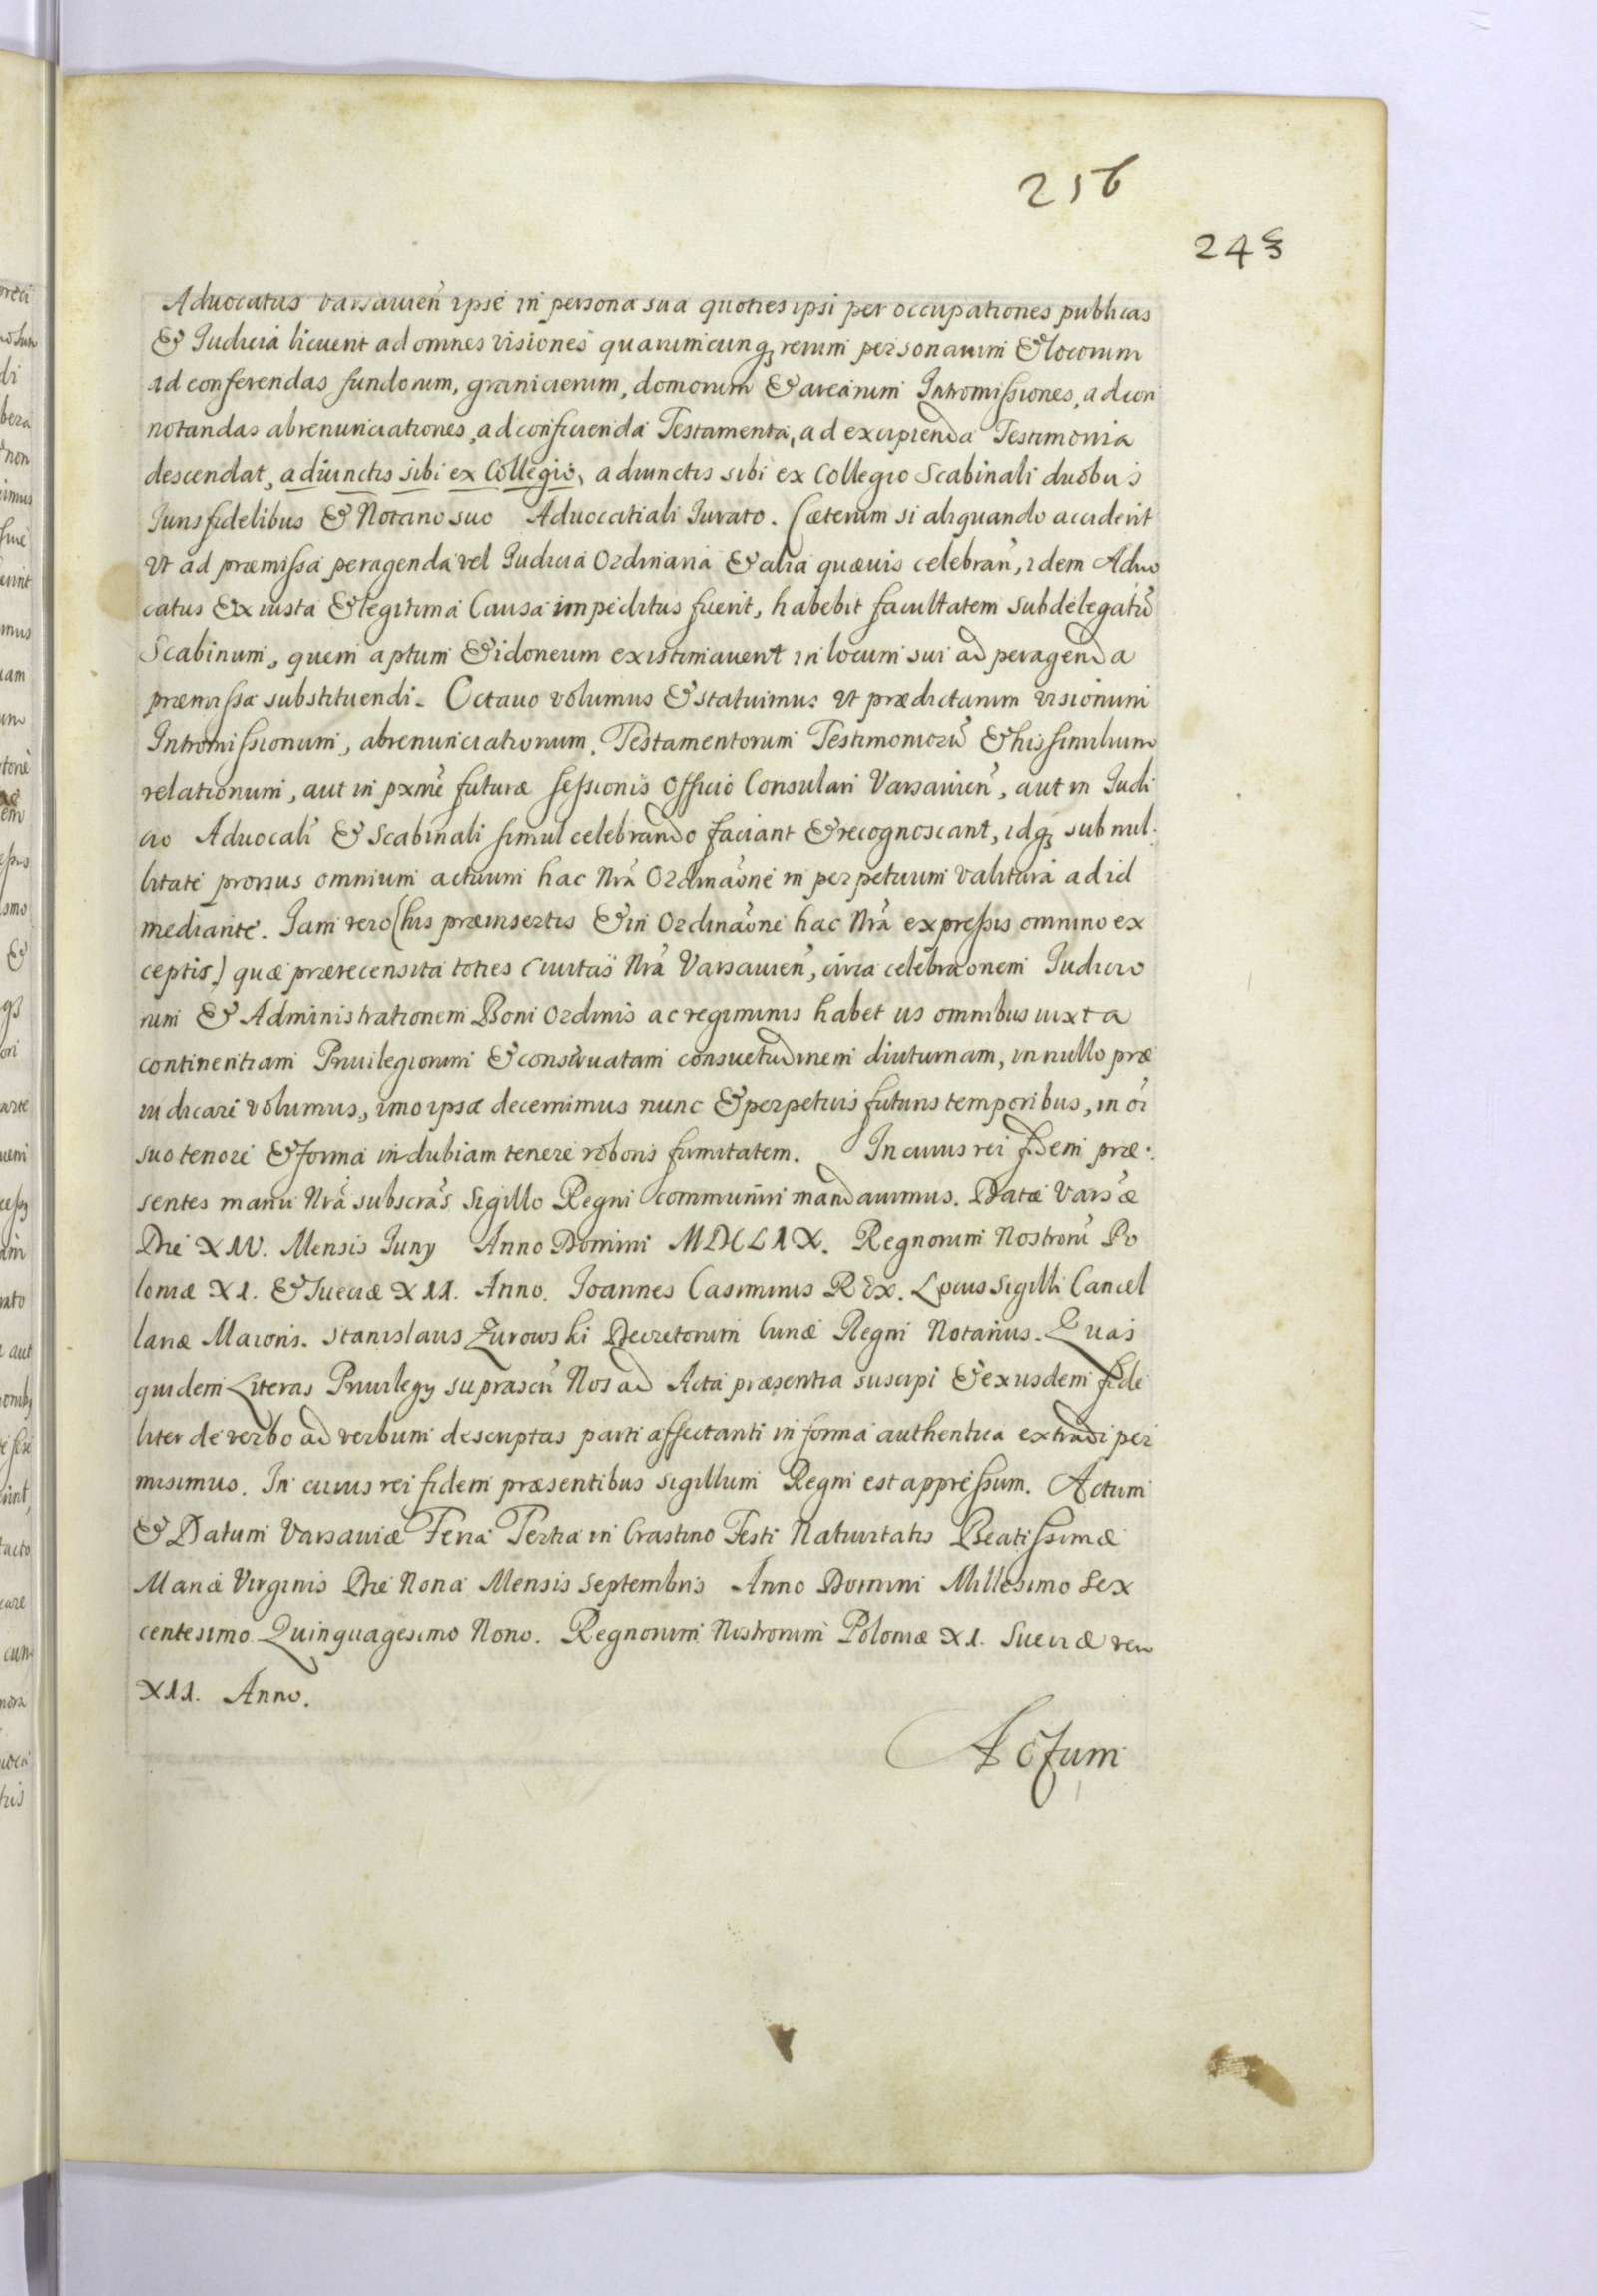 256
243
Advocatus Varsavien̄ ipse in persona sua quoties ipsi per occupationes publicas
& Judicia licuerit ad omnes visiones quarumcunq₃ rerum personarum & locorum
ad conferendas fundorum, granicierum, domorum & arearum Intromissiones, ad con
notandas abrenunciationes, ad conficienda Testamenta, ad excipienda Testimonia
descendat, adiunctis sibi ex Collegio, adiunctis sibi ex Collegio Scabinali duobus
Juris fidelibus & Notario suo Advocatiali Jurato. Cæterum si aliquando acciderit
Ut ad præmissa peragenda vel Judicia Ordinaria & alia quævis celebran̄, idem Advo
catus Ex iusta & legitima Causa impeditus fuerit, habebit facultatem subdelegatū
Scabinum, quem aptum & idoneum existimaverit in locum sui ad peragenda
præmissa substituendi. Octavo volumus & statuimus ut prædictarum visionum
Intromissionum, abrenunciationum, Testamentorum Testimoniorū & his similium
relationum, aut in pxmē futuræ sessionis Officio Consulari Varsavien̄, aut in Judi
cio Advocali & Scabinali simul celebrando faciant & recognoscant, idq₃ sub nul
litate prorsus omnium actuum hac Nrā Ordinaōne in perpetuum valitura ad id
mediante. Jam vero (his præinsertis & in Ordinaōne hac Nrā expressis omnino ex
ceptis) quæ prærecensita toties Civitas Nrā Varsavien̄, circa celebraōnem Judicio
rum & Administrationem Boni Ordinis ac regiminis habet iis omnibus iuxta
continentiam Privilegiorum & conservatam consuetudinem diuturnam, in nullo præ
iudicare volumus, imo ipsa decernimus nunc & perpetuis futuris temporibus, in oī
suo tenore & forma indubiam tenere roboris firmitatem. In cuius rei fidem præ
sentes manu Nrā subscrās Sigillo Regni communiri mandavimus. Datæ Varsæ
Die XIV. Mensis Juny Anno Domini MDCLIX. Regnorum Nostrorū Po
loniæ XI. & Sueciæ XII. Anno. Joannes Casimirus REX. Locus Sigilli Cancel
lariæ Maioris. Stanislaus Zurowski Decretorum Curiæ Regni Notarius. Quas
quidem Literas Privilegy suprascr̄ Nos ad Acta præsentia suscipi & ex iisdem fide
liter de verbo ad verbum descriptas parti affectanti in forma authentica extradi per
misimus. In cuius rei fidem præsentibus sigillum Regni est appressum. Actum
& Datum Varsaviæ Feria Tertia in Crastino Festi Nativitatis Beatissimæ
Mariæ Virginis Die Nona Mensis Septembris Anno Domini Millesimo Sex
centesimo Quinquagesimo Nono. Regnorum Nostrorum Poloniæ XI. Sueciæ vero
XII. Anno.
Actum